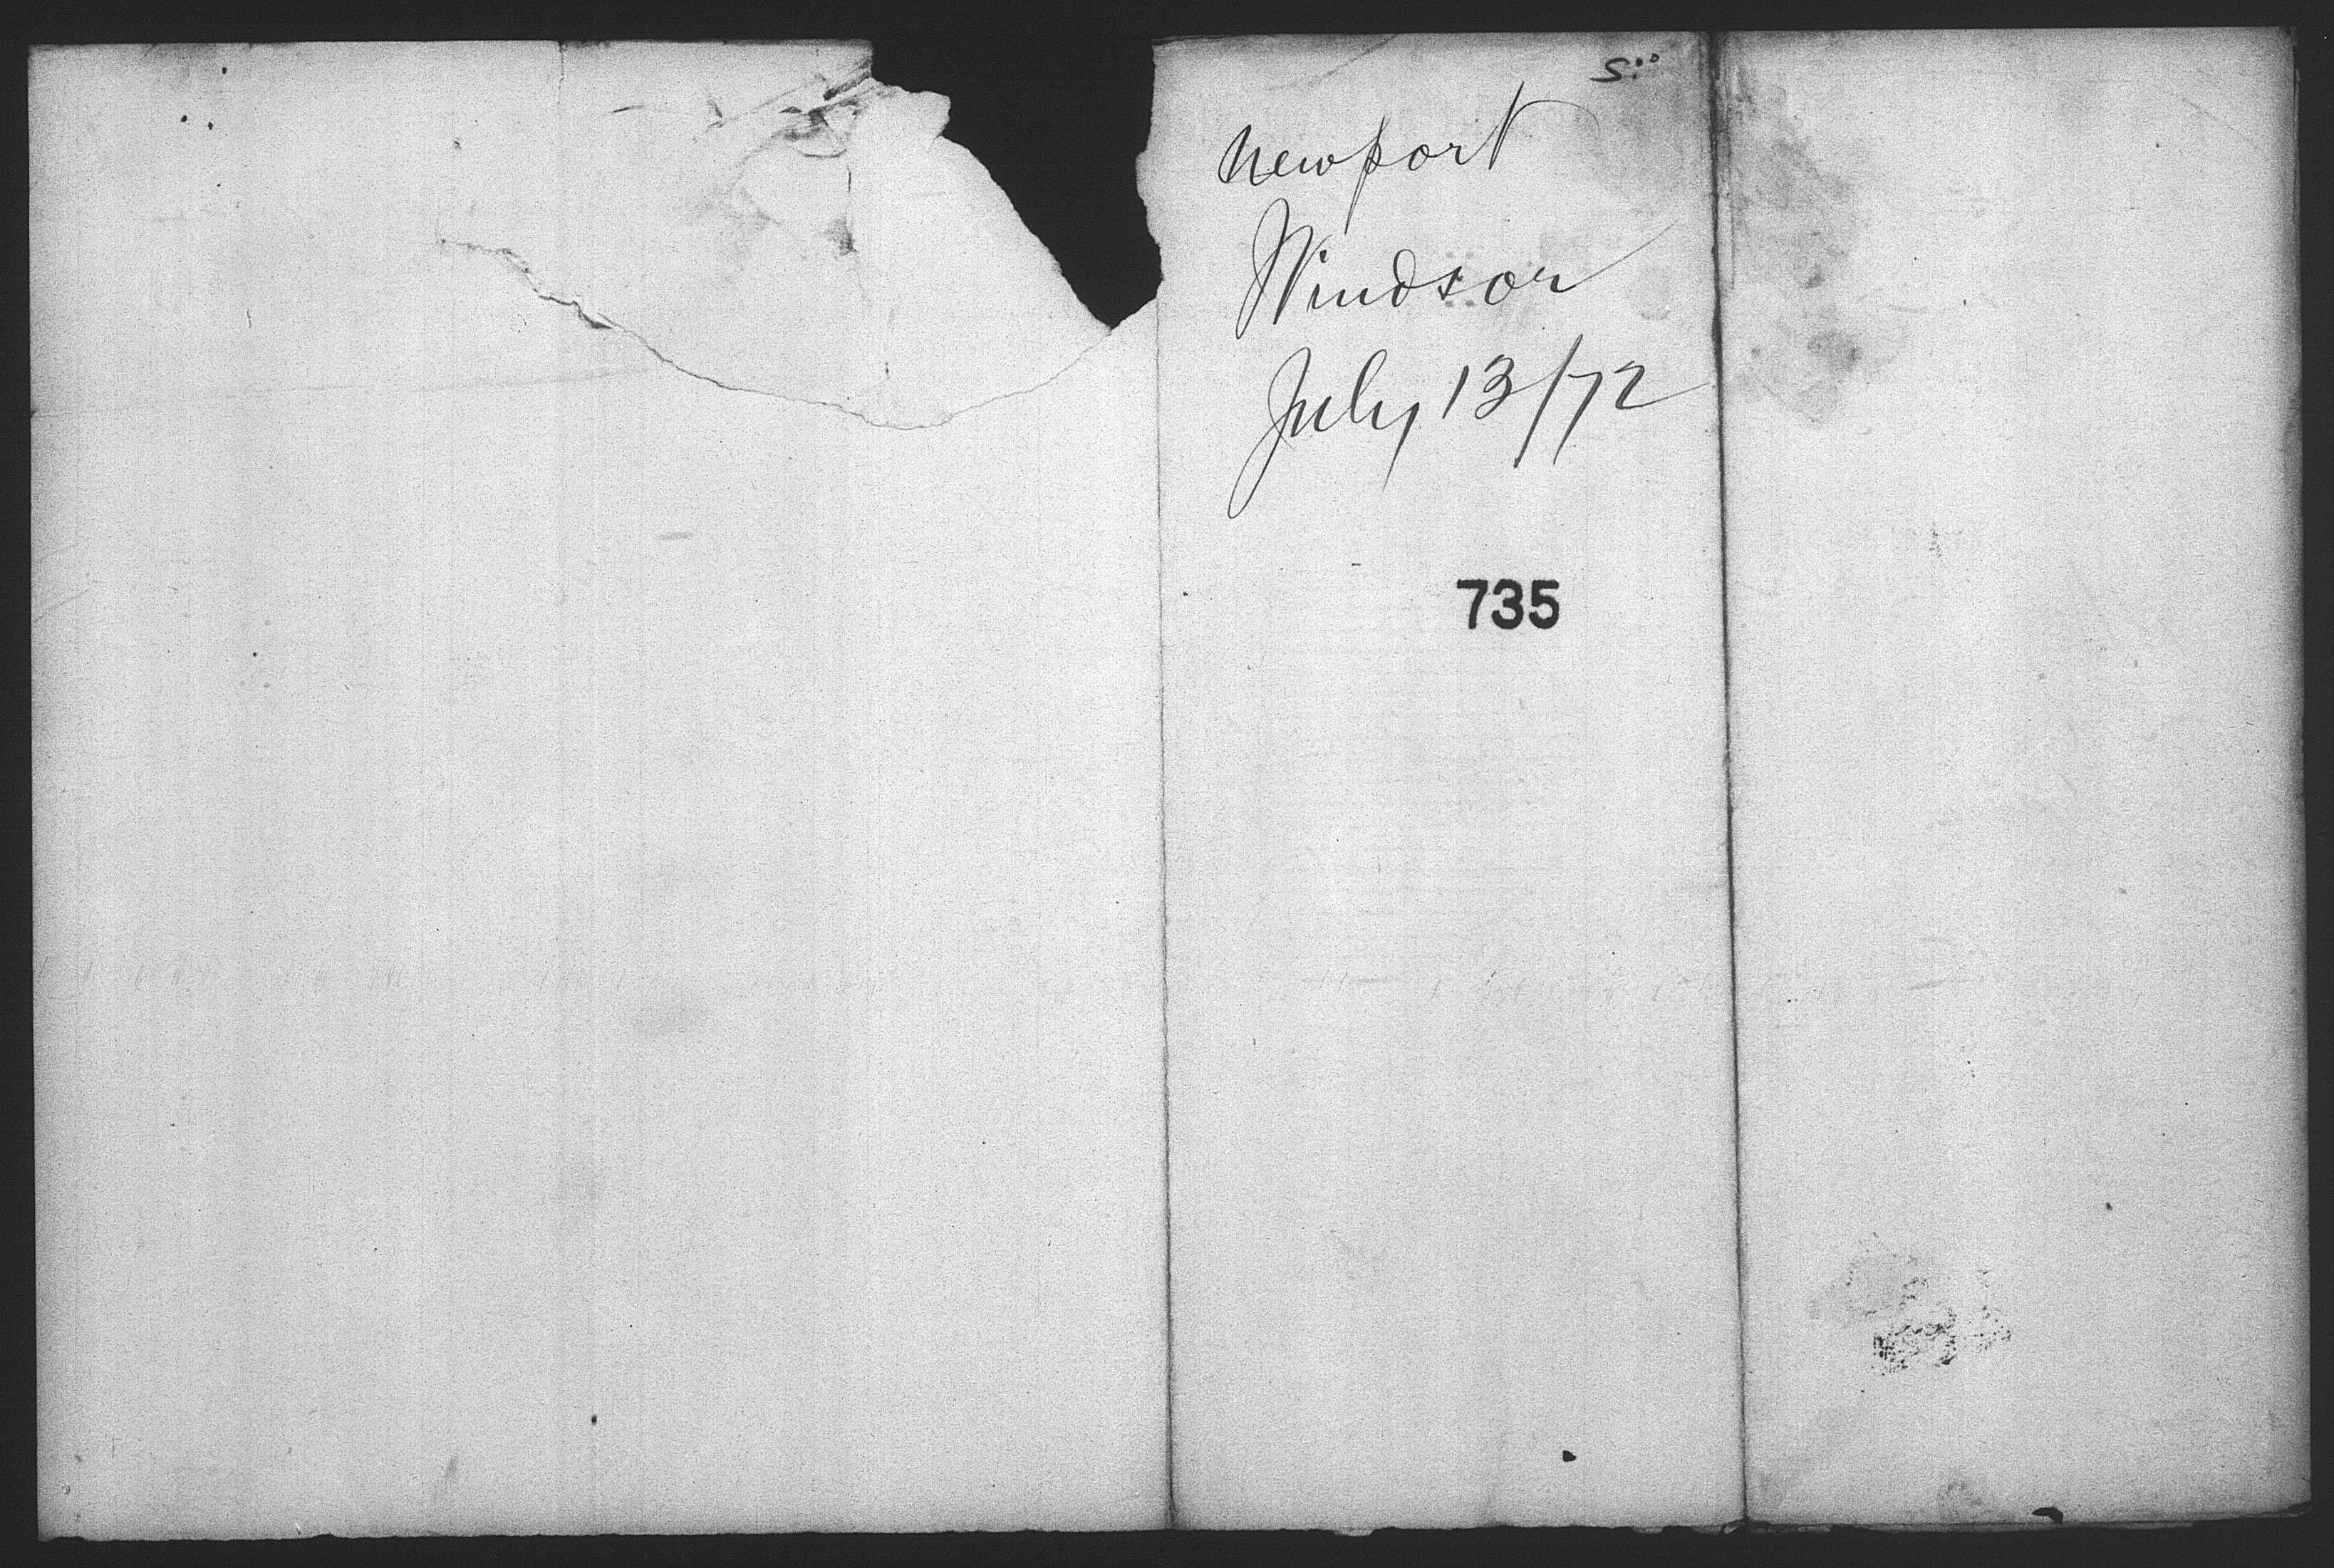 Newport
Windsor
July 13/72
735